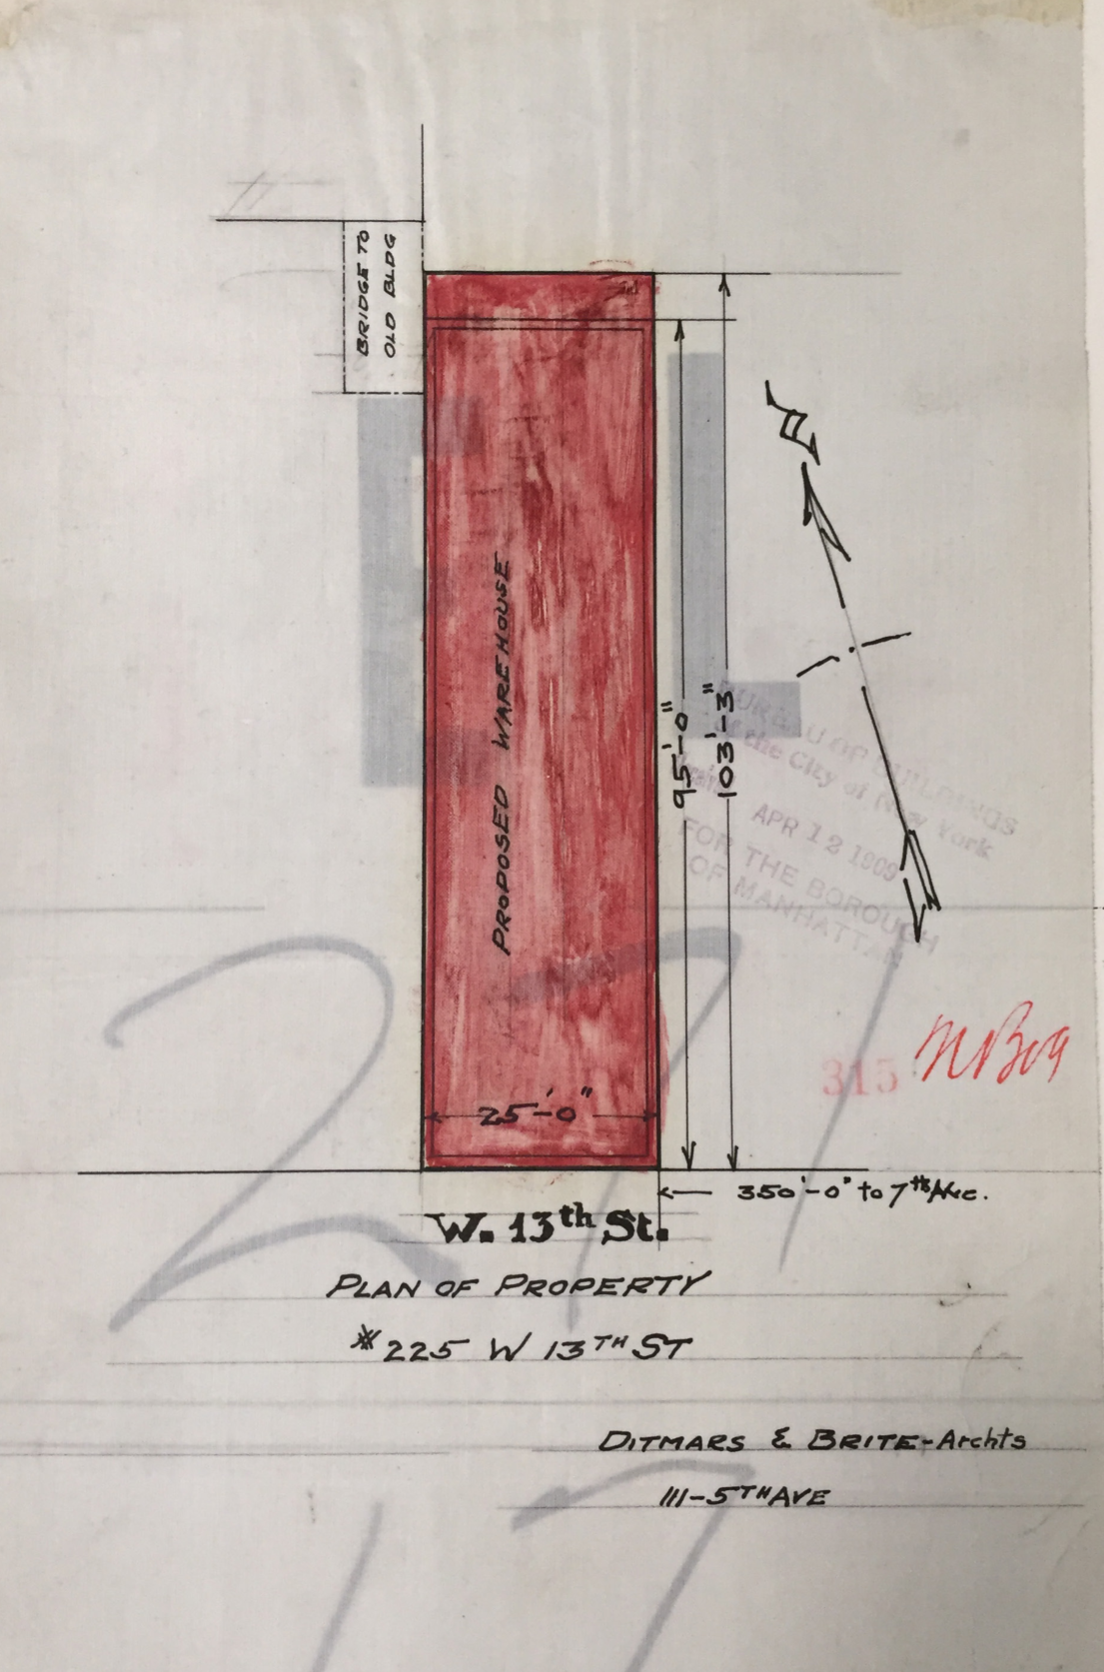 BRIDGE TO
OLD BLDG
PROPOSED WAREHOUSE
95'-0"
103'-3"
BUREAU OF BUILDINGS
of the City of New York
APR 12 1909
FOR THE BOROUGH
OF MANHATTAN
315 NB09
25'-0"
350'-0" to 7th Ave.
W. 13th St.
PLAN OF PROPERTY
#225 W 13TH ST
DITMARS & BRITE-Archts
111-5TH AVE